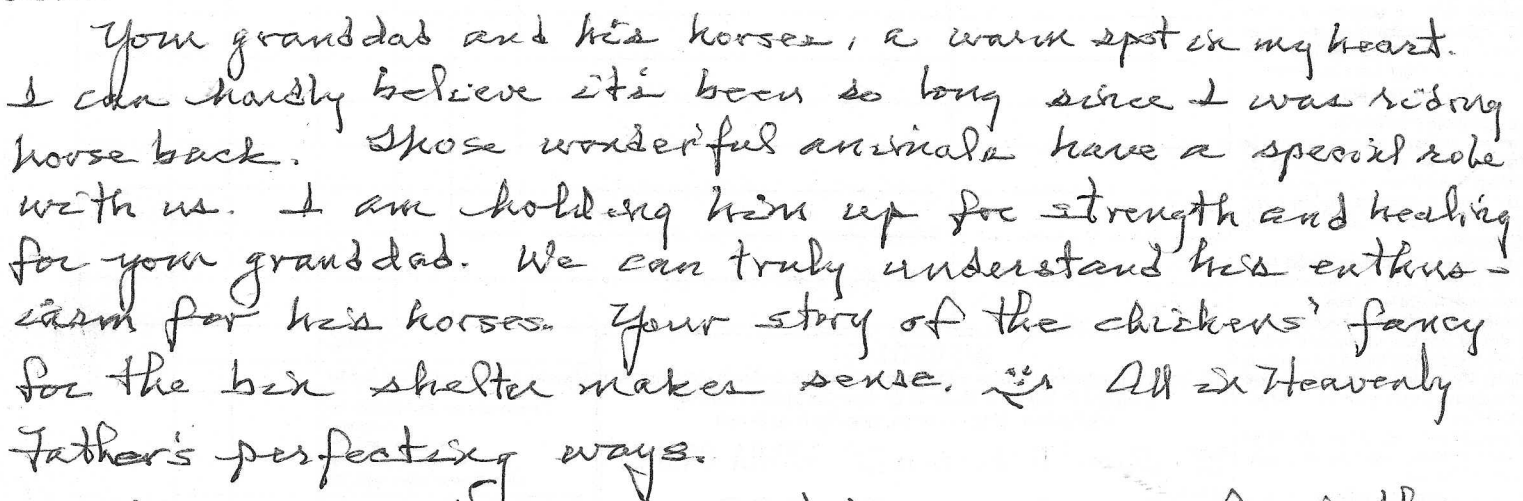 Your granddad and his horses, a warm spot in my heart.
I can hardly believe it's been so long since I was riding
horse back. Those wonderful animals have a special role
with us. I am holding him up for strength and healing
for your granddad. We can truly understand his enthus-
iasm for his horses. Your story of the chickens' fancy
for the bin shelter makes sense. All in Heavenly
Father's perfecting ways.